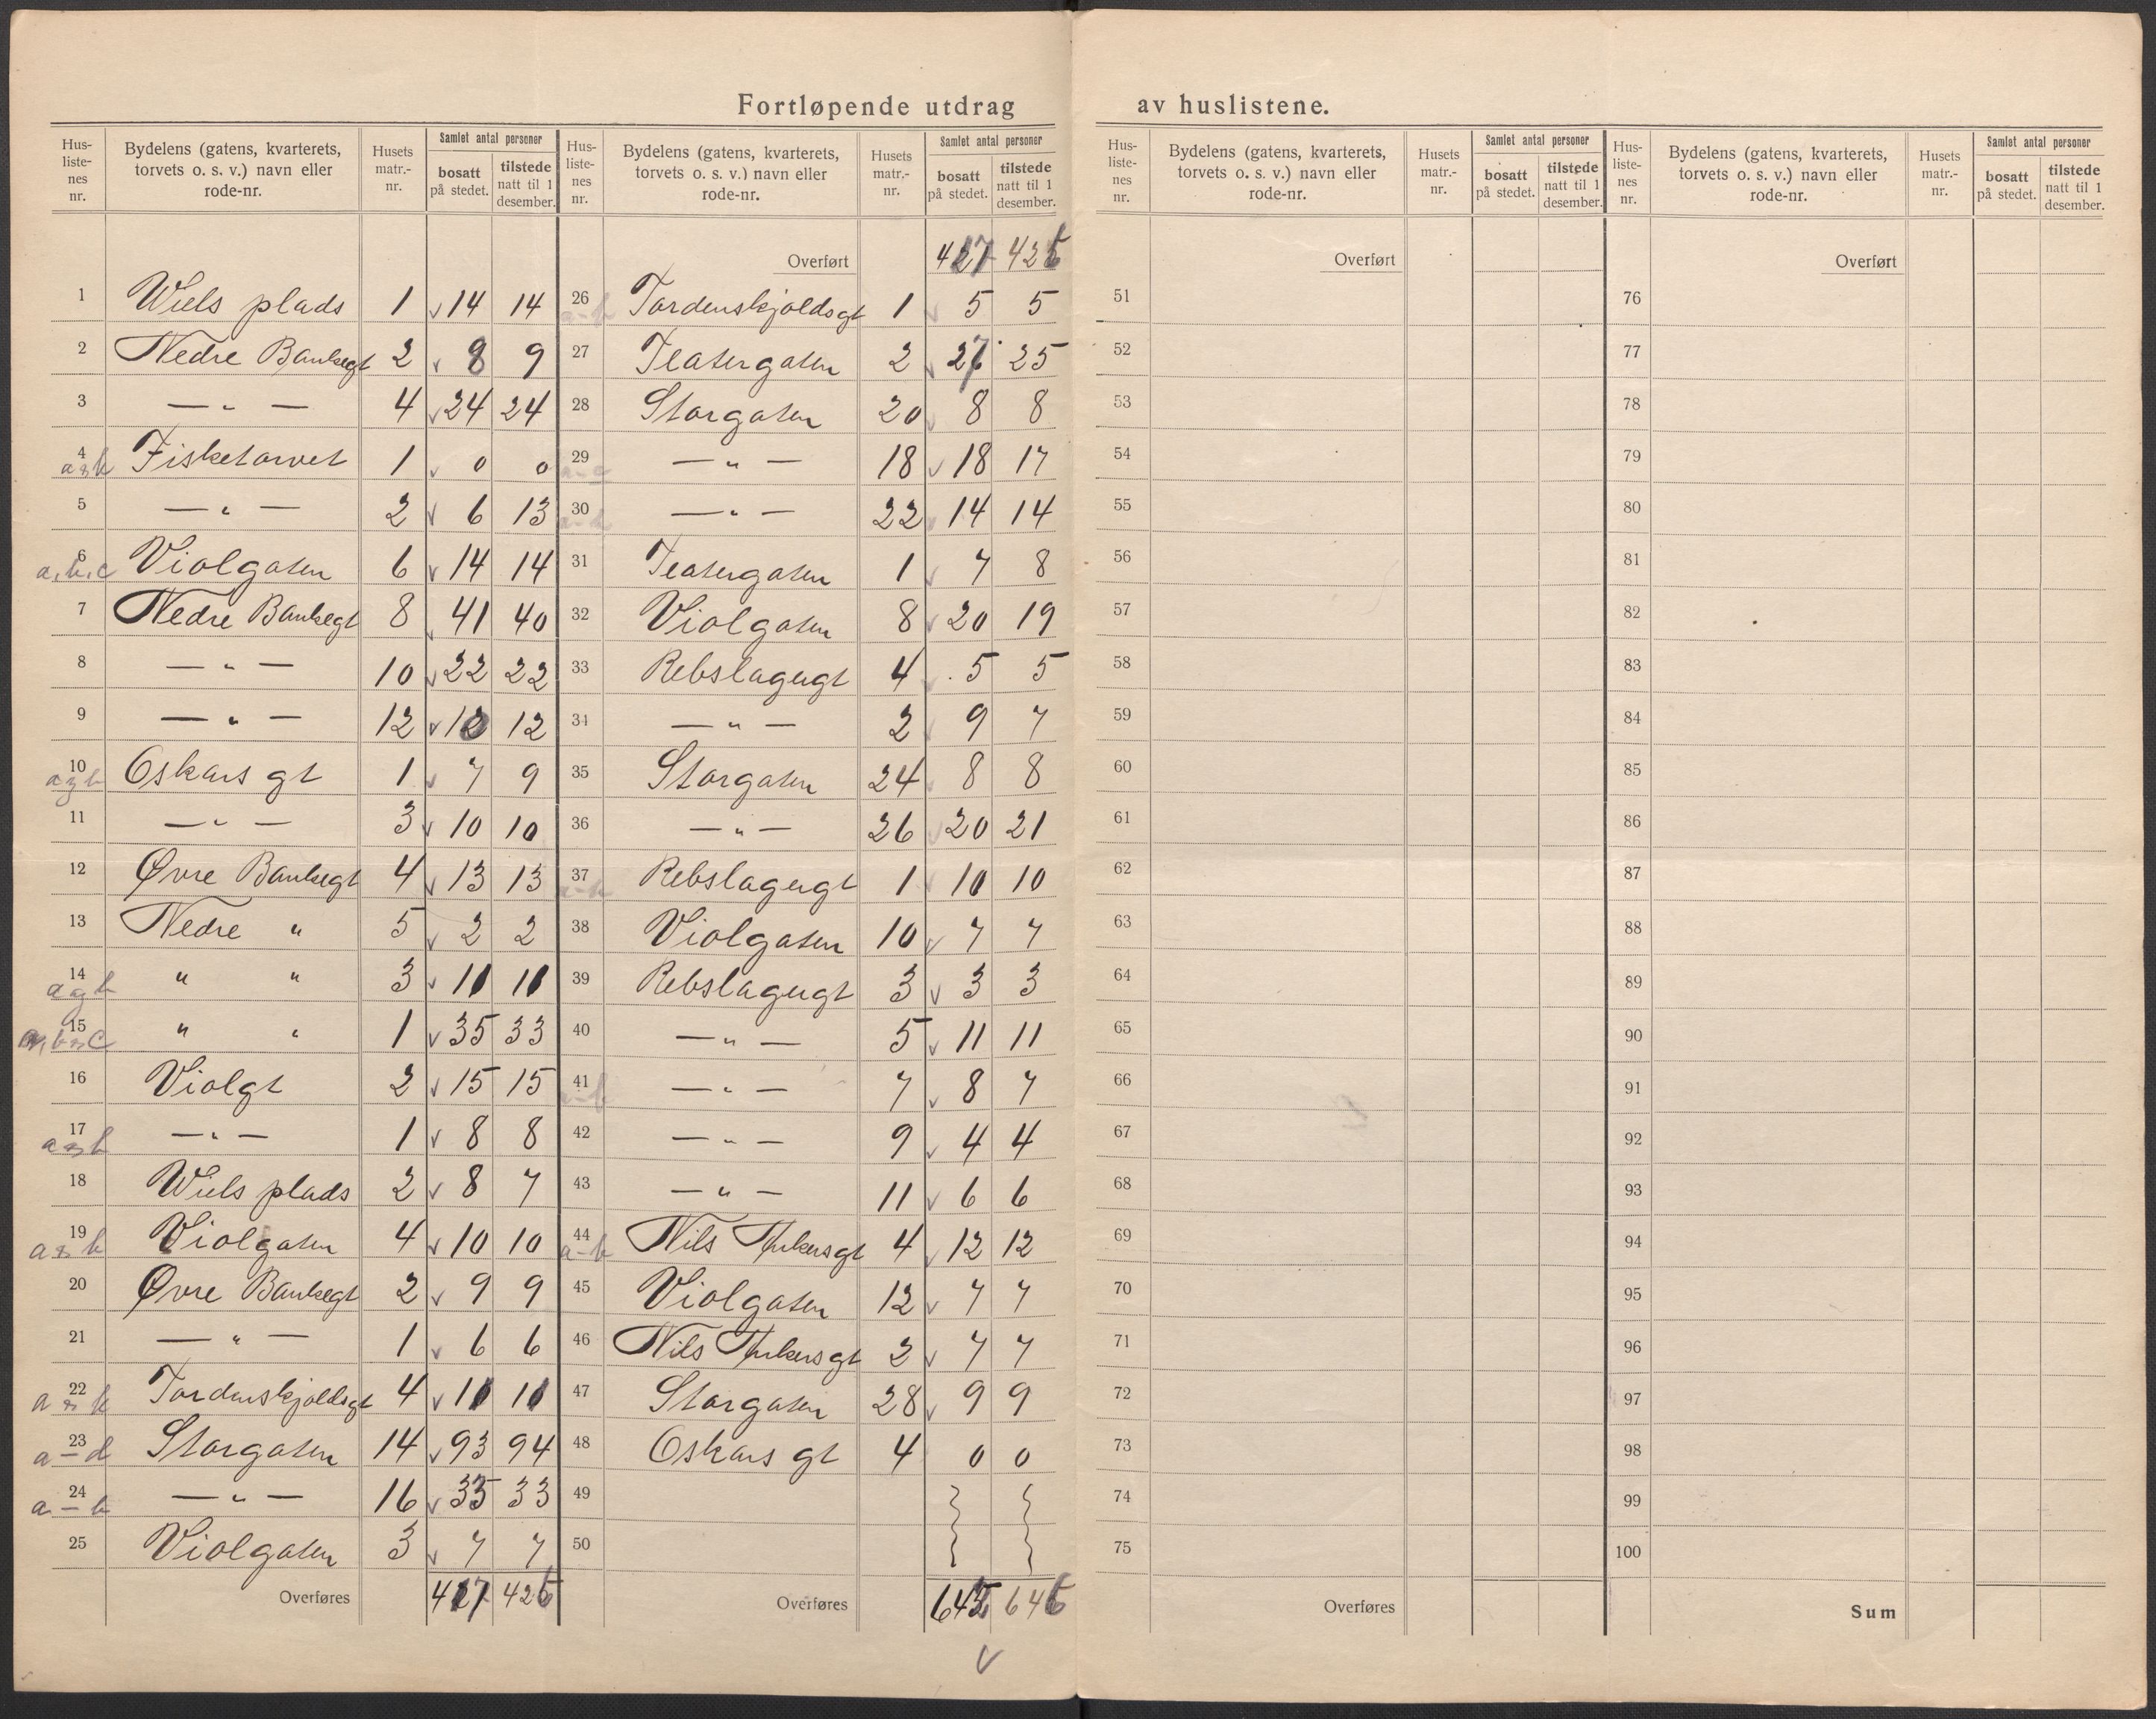 Fortløpende utdrag av huslistene.
Hus-listenes nr. Bydelens (gatens, kvarterets, torvets o. s. v.) navn eller rode-nr. Husets matr.-nr. Samlet antal personer bosatt på stedet. tilstede natt til 1 desember.
1 Wiels plads 1 14 14
2 Nedre Banksgt 2 8 9
3 — " — 4 24 24
4 a & b Fisketorvet 1 0 0
5 — " — 2 6 13
6 a, b, c Violgaten 6 14 14
7 Nedre Banksgt 8 41 40
8 — " — 10 22 22
9 — " — 12 12 12
10 a & b Oskars gt 1 7 9
11 — " — 3 10 10
12 Øvre Banksgt 4 13 13
13 Nedre " 5 2 2
14 a & b " " 3 11 11
15 a, b & c " " 1 35 33
16 Violgt 2 15 15
17 a & b — " — 1 8 8
18 Wiels plads 2 8 7
19 a & b Violgaten 4 10 10
20 Øvre Banksgt 2 9 9
21 — " — 1 6 6
22 a & b Tordenskjoldsgt 4 11 11
23 a – d Storgaten 14 93 94
24 a – b — " — 16 33
25 Violgaten 3 7 7
Overføres 427 425
Hus-listenes nr. Bydelens (gatens, kvarterets, torvets o. s. v.) navn eller rode-nr. Husets matr.-nr. Samlet antal personer bosatt på stedet. tilstede natt til 1 desember.
Overført 427 425
26 a-b Tordenskjoldsgt 1 5 5
27 Teatergaten 2 27 25
28 Storgaten 20 8 8
29 a-c — " — 18 18 17
30 a-b — " — 22 14 14
31 Teatergaten 1 7 8
32 Violgaten 8 20 19
33 Rebslagergt 4 5 5
34 — " — 2 9 7
35 Storgaten 24 8 8
36 — " — 26 20 21
37 a-b Rebslagergt 1 10 10
38 Violgaten 10 7 7
39 Rebslagergt 3 3 3
40 — " — 5 11 11
41 a-b — " — 7 8 7
42 — " — 9 4 4
43 — " — 11 6 6
44 a-b Nils 4 12 12
45 Violgaten 12 7 7
46 Nils 2 7 7
47 Storgaten 28 9 9
48 Oskars gt 4 0 0
49
50
Overføres 645
Hus-listenes nr. Bydelens (gatens, kvarterets, torvets o. s. v.) navn eller rode-nr. Husets matr.-nr. Samlet antal personer bosatt på stedet. tilstede natt til 1 desember.
Overført
51
52
53
54
55
56
57
58
59
60
61
62
63
64
65
66
67
68
69
70
71
72
73
74
75
Overføres
Hus-listenes nr. Bydelens (gatens, kvarterets, torvets o. s. v.) navn eller rode-nr. Husets matr.-nr. Samlet antal personer bosatt på stedet. tilstede natt til 1 desember.
Overført
76
77
78
79
80
81
82
83
84
85
86
87
88
89
90
91
92
93
94
95
96
97
98
99
100
Sum